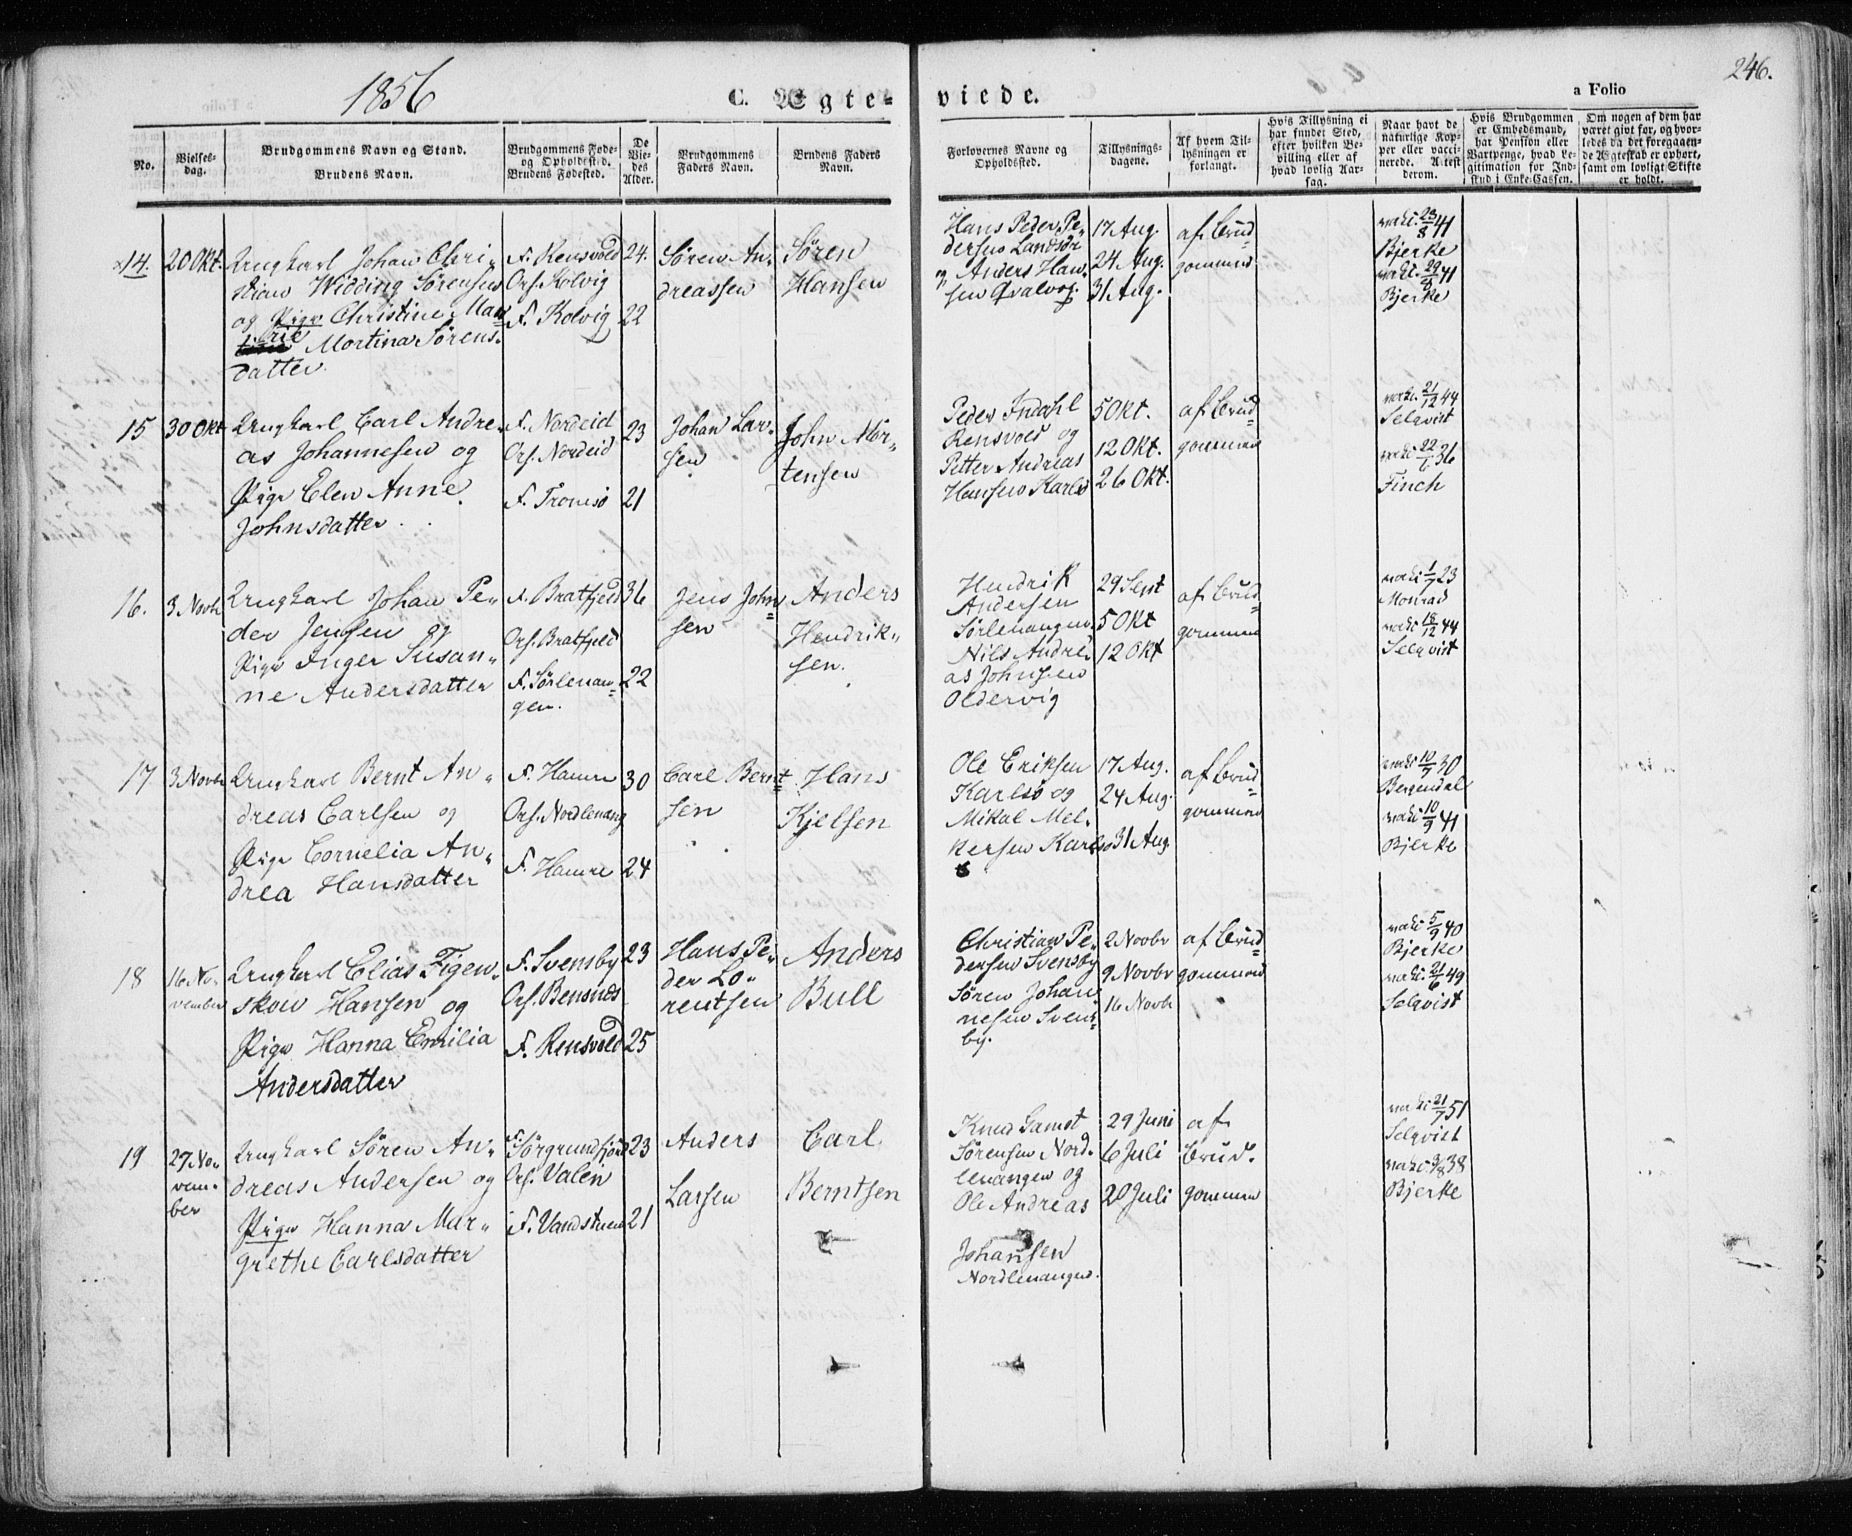 1856
C. Ægte-
viede.
a Folio
246.
No.
Vielses-
dag.
Brudgommens Navn og Stand.
Brudens Navn.
Brudgommens Føde-
og Opholdsted.
Brudens Fødested.
De
Vie-
des
Alder.
Brudgommens
Faders Navn.
Brudens Faders
Navn.
Forlovernes Navne og
Opholdsted.
Tillysnings-
dagene.
Af hvem Til-
lysningen er
forlangt.
Hvis Tillysning ei
har fundet Sted,
efter hvilken Be-
villing eller af
hvad lovlig Aar-
sag.
Naar havt de
naturlige Kop-
per eller vacci-
nerede. Attest
derom.
Hvis Brudgommen
er Embedsmand,
har Pension eller
Vartpenge, hvad Le-
gitimation for Ind-
skud i Enke-Cassen.
Om nogen af dem har
været gift før, og hvor-
ledes da det foregaaen-
de Ægteskab er ophørt,
samt om lovligt Skifte
er holdt.
14.
20 Okt.
Ungkarl Johan Chri-
stian Widding Sørensen
og Pige Christine Ma-
rie Mortina Sørens-
datter.
F. Rensvold
Ops. Kolvig
F. Kolvig
24.
22
Søren An-
dreassen
Søren
Hansen
Hans Peder Pe-
dersen
Anders Han-
sen
17 Aug.
24 Aug.
31 Aug.
af Brud-
gommen
vacc. 23/8 41
Bjerke
vacc. 29/8 41
Bjerke
15
30 Okt
Ungkarl Carl Andre-
as Johannesen og
Pige Elen Anne
Johnsdatter.
F. Nordeid
Ops. Nordeid
F. Tromsø
23
21
Johan Lar-
sen
John Mor-
tensen
Peder Indahl
Rensvold og
Petter Andreas
Hansen Karlsø
5 Okt.
12 Okt.
26 Okt.
af Brud-
gommen
vacc. 21/12 44
Selqvist
vacc. 22/6 36
Finch
16.
3. Novb
Ungkarl Johan Pe-
der Jensen og
Pige Inger Susan-
ne Andersdatter
F. Bratfjeld
Ops. Bratfjeld
F. Sørlenan-
gen.
36
22
Jens John-
sen
Anders
Hendrik-
sen.
Hendrik
Andersen
Sørlenangen
Nils Andre-
as Johnsen
Oldervig
29 Sept
5 Okt
12 Okt
af Brud-
gommen
vacc. 1/7 23
Monrad
vacc. 18/12 44
Selqvist
17
3 Novbr
Ungkarl Bernt An-
dreas Carlsen og
Pige Cornelia An-
drea Hansdatter
F. Hamre
Ops. Nordlenang
F. Hamre
30
24
Carl Bernt-
sen
Hans
Kjelsen
Ole Eriksen
Karlsø og
Mikal Mel-
kersen Karlsø
17 Aug.
24 Aug.
31 Aug.
af Brud-
gommen
vacc. 10/7 30
Bergendal
vacc. 10/9 41
Bjerke
18
16 No-
vember
Ungkarl Elias Figen-
skou Hansen og
Pige Hanna Emilia
Andersdatter
F. Svensby
Ops. Bensnes
F. Rensvold
23
25
Hans Pe-
der Lo-
rentsen
Anders
Bull
Christian Pe-
dersen Svensby
Søren Johan-
nesen Svens-
by.
2 Novbr
9 Novbr
16 Novbr
af Brud-
gommen
vacc. 5/9 40
Bjerke
vacc. 21/6 49
Selqvist
19
27 No-
vem-
ber
Ungkarl Søren An-
dreas Andersen og
Pige Hanna Mar-
grethe Carlsdatter
F. Sørgrundfjord
Ops. Valen
F. Vandstuen
23
21
Anders
Larsen
Carl
Berntsen
Knud Samot
Sørensen Nord-
lenangen og
Ole Andreas
Johansen
Nordlenangen.
29 Juni
6 Juli
20 Juli
af
Brud-
gommen
vacc. 21/7 51
Selqvist
vacc. 9/8 38
Bjerke